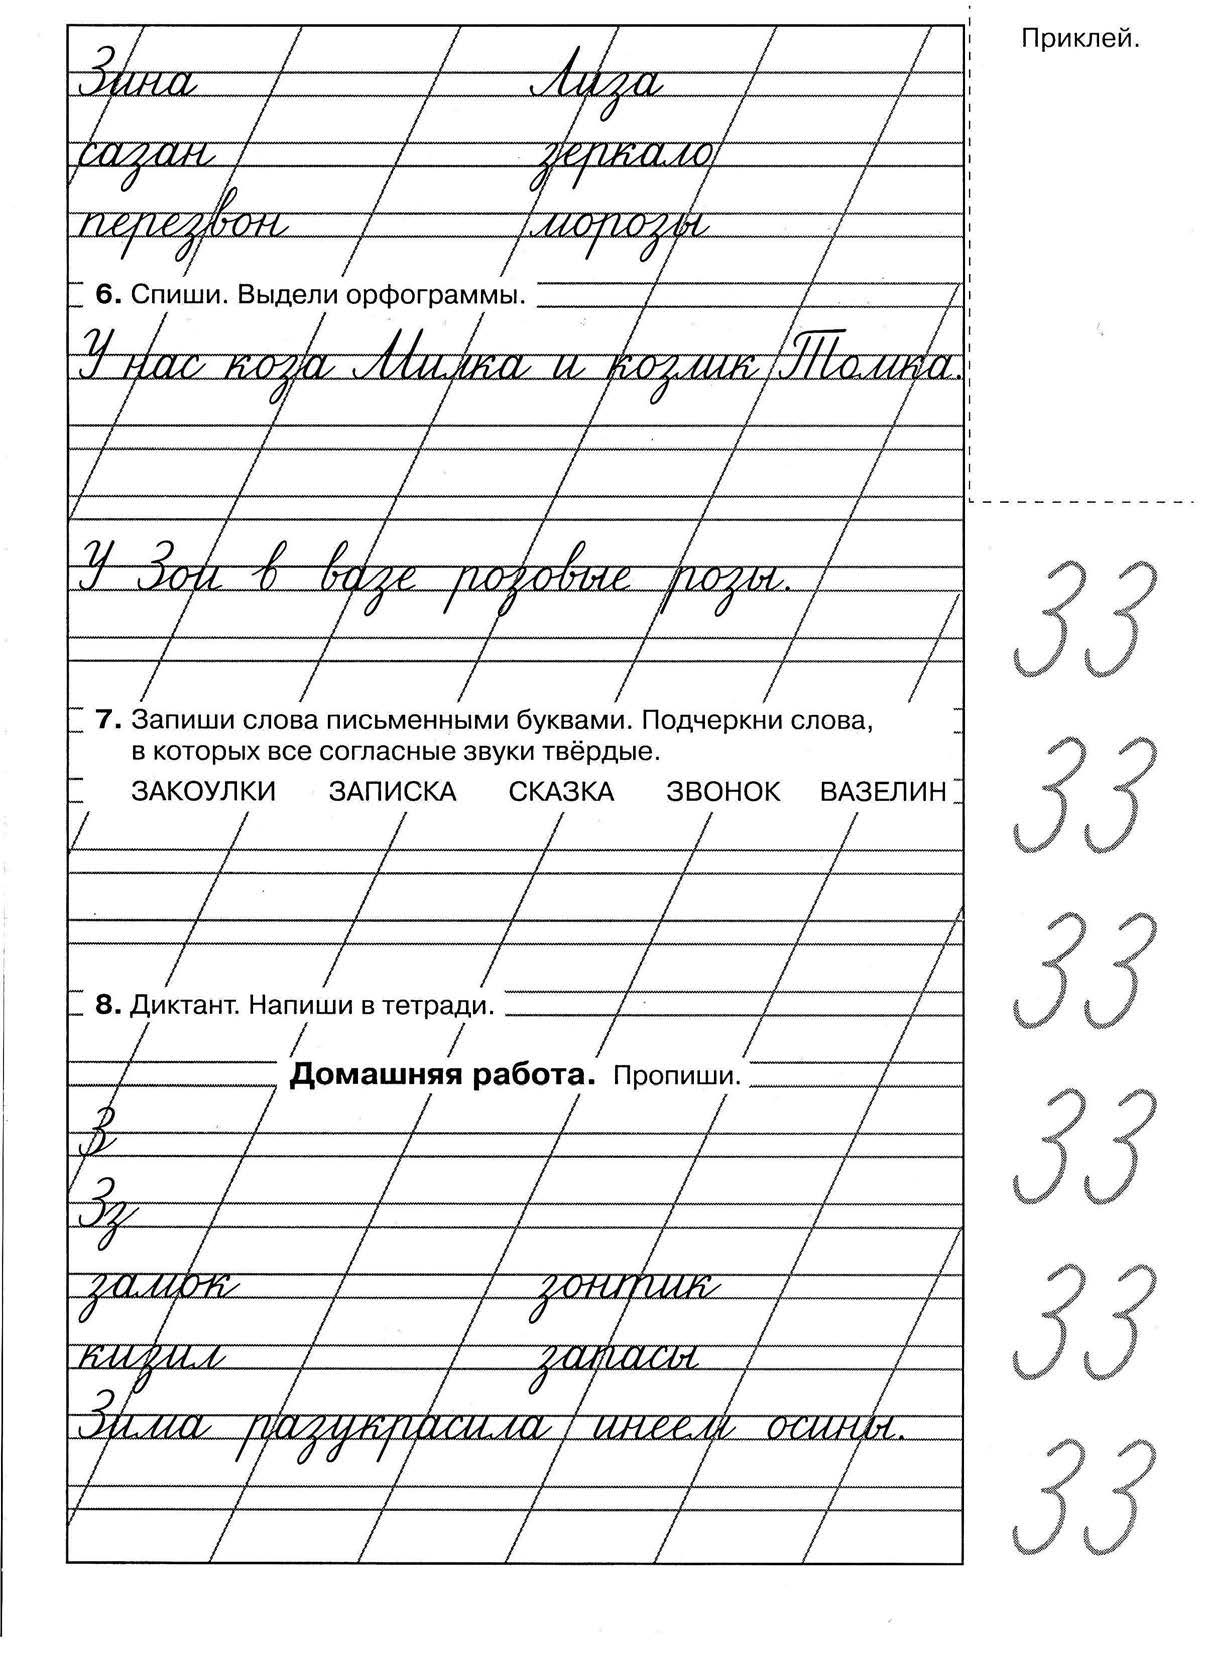 Приклей.
Зина Лиза
сазан зеркало
перезвон морозы
6. Спиши. Выдели орфограммы.
У нас коза Милка и козлик Томка.
У Зои в вазе розовые розы.
7. Запиши слова письменными буквами. Подчеркни слова,
в которых все согласные звуки твёрдые.
ЗАКОУЛКИ ЗАПИСКА СКАЗКА ЗВОНОК ВАЗЕЛИН
8. Диктант. Напиши в тетради.
Домашняя работа. Пропиши.
З
Зз
замок зонтик
кизил запасы
Зима разукрасила инеем осины.
З З
З З
З З
З З
З З
З З